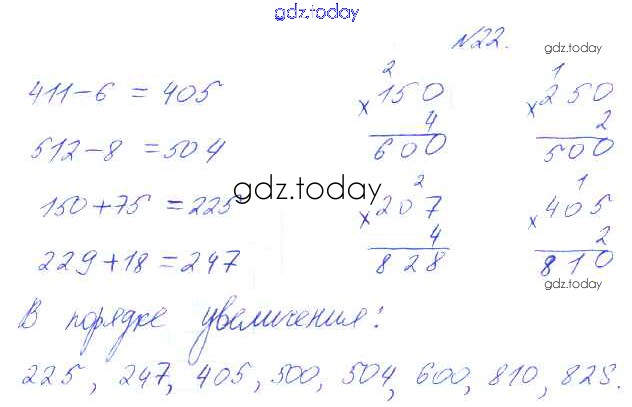 gdz.today
№22.
gdz.today
411-6 = 405
512-8 = 504
150+75 = 225
229+18 = 247
2
×150
4
600
1
×250
2
500
gdz.today
2
×207
4
828
1
×405
2
810
gdz.today
В порядке увеличения:
225, 247, 405, 500, 504, 600, 810, 828.